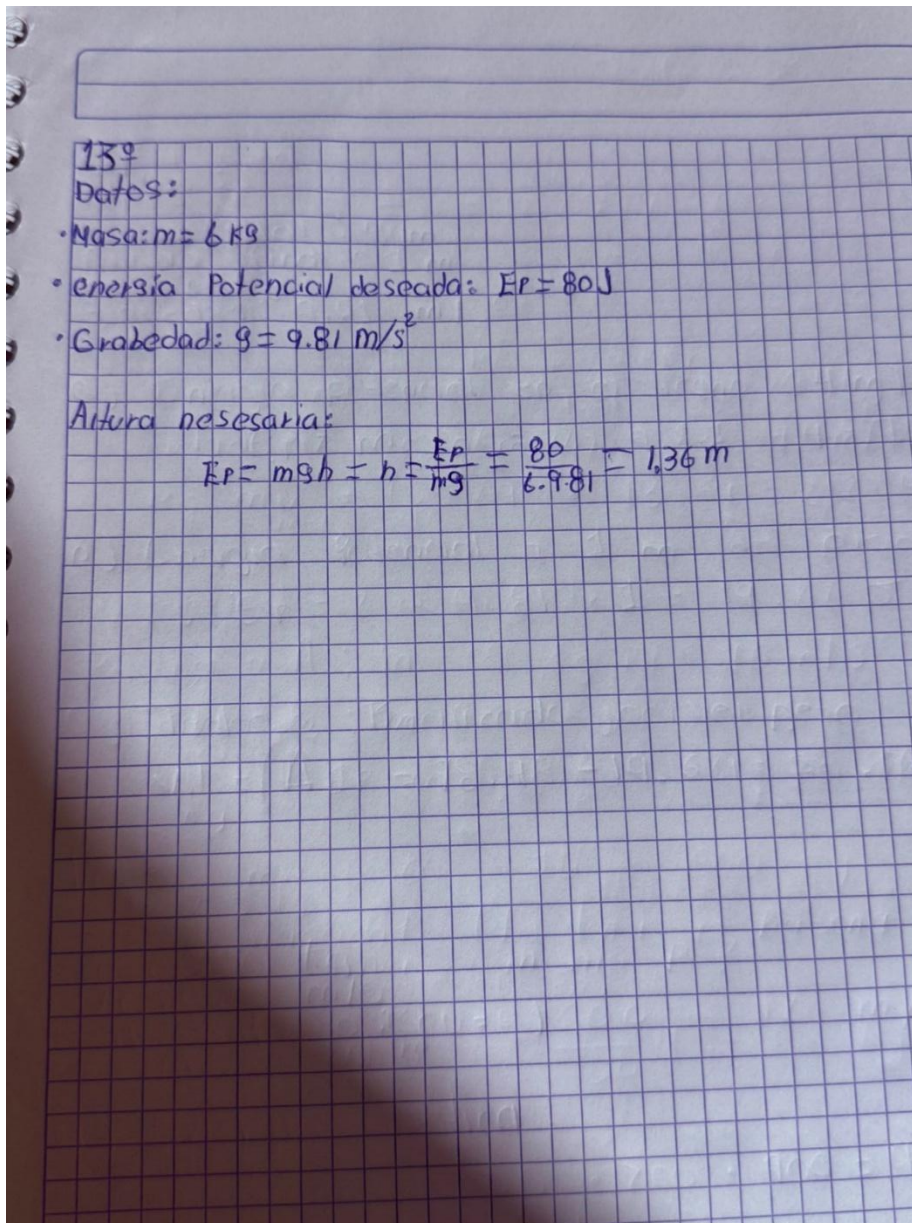 13º
Datos:
·Masa: m= 6 kg
· energía Potencial deseada: EP = 80J
·Grabedad: g = 9.81 m/s²
Altura nesesaria:
EP = mgh = h = EP/mg = 80/6·9.81 = 1,36 m